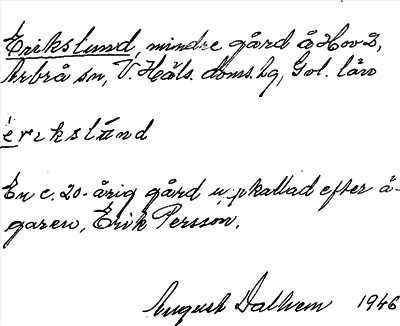 Erikslund, mindre gård å Hov 3,
Arbrå sn, V. Häls. doms. hg, Gvl. län
erikslund
En c. 20-årig gård uppkallad efter ä-
garen, Erik Persson.
August Dalhem 1946